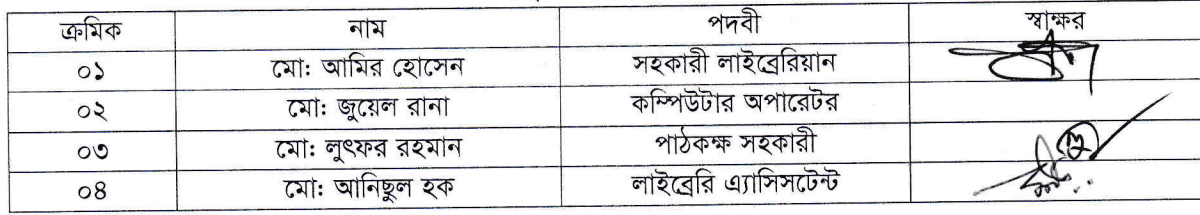 ক্রমিক নাম পদবী স্বাক্ষর
০১ মো: আমির হোসেন সহকারী লাইব্রেরিয়ান
০২ মো: জুয়েল রানা কম্পিউটার অপারেটর
০৩ মো: লুৎফর রহমান পাঠকক্ষ সহকারী
০৪ মো: আনিছুল হক লাইব্রেরি এ্যাসিসটেন্ট